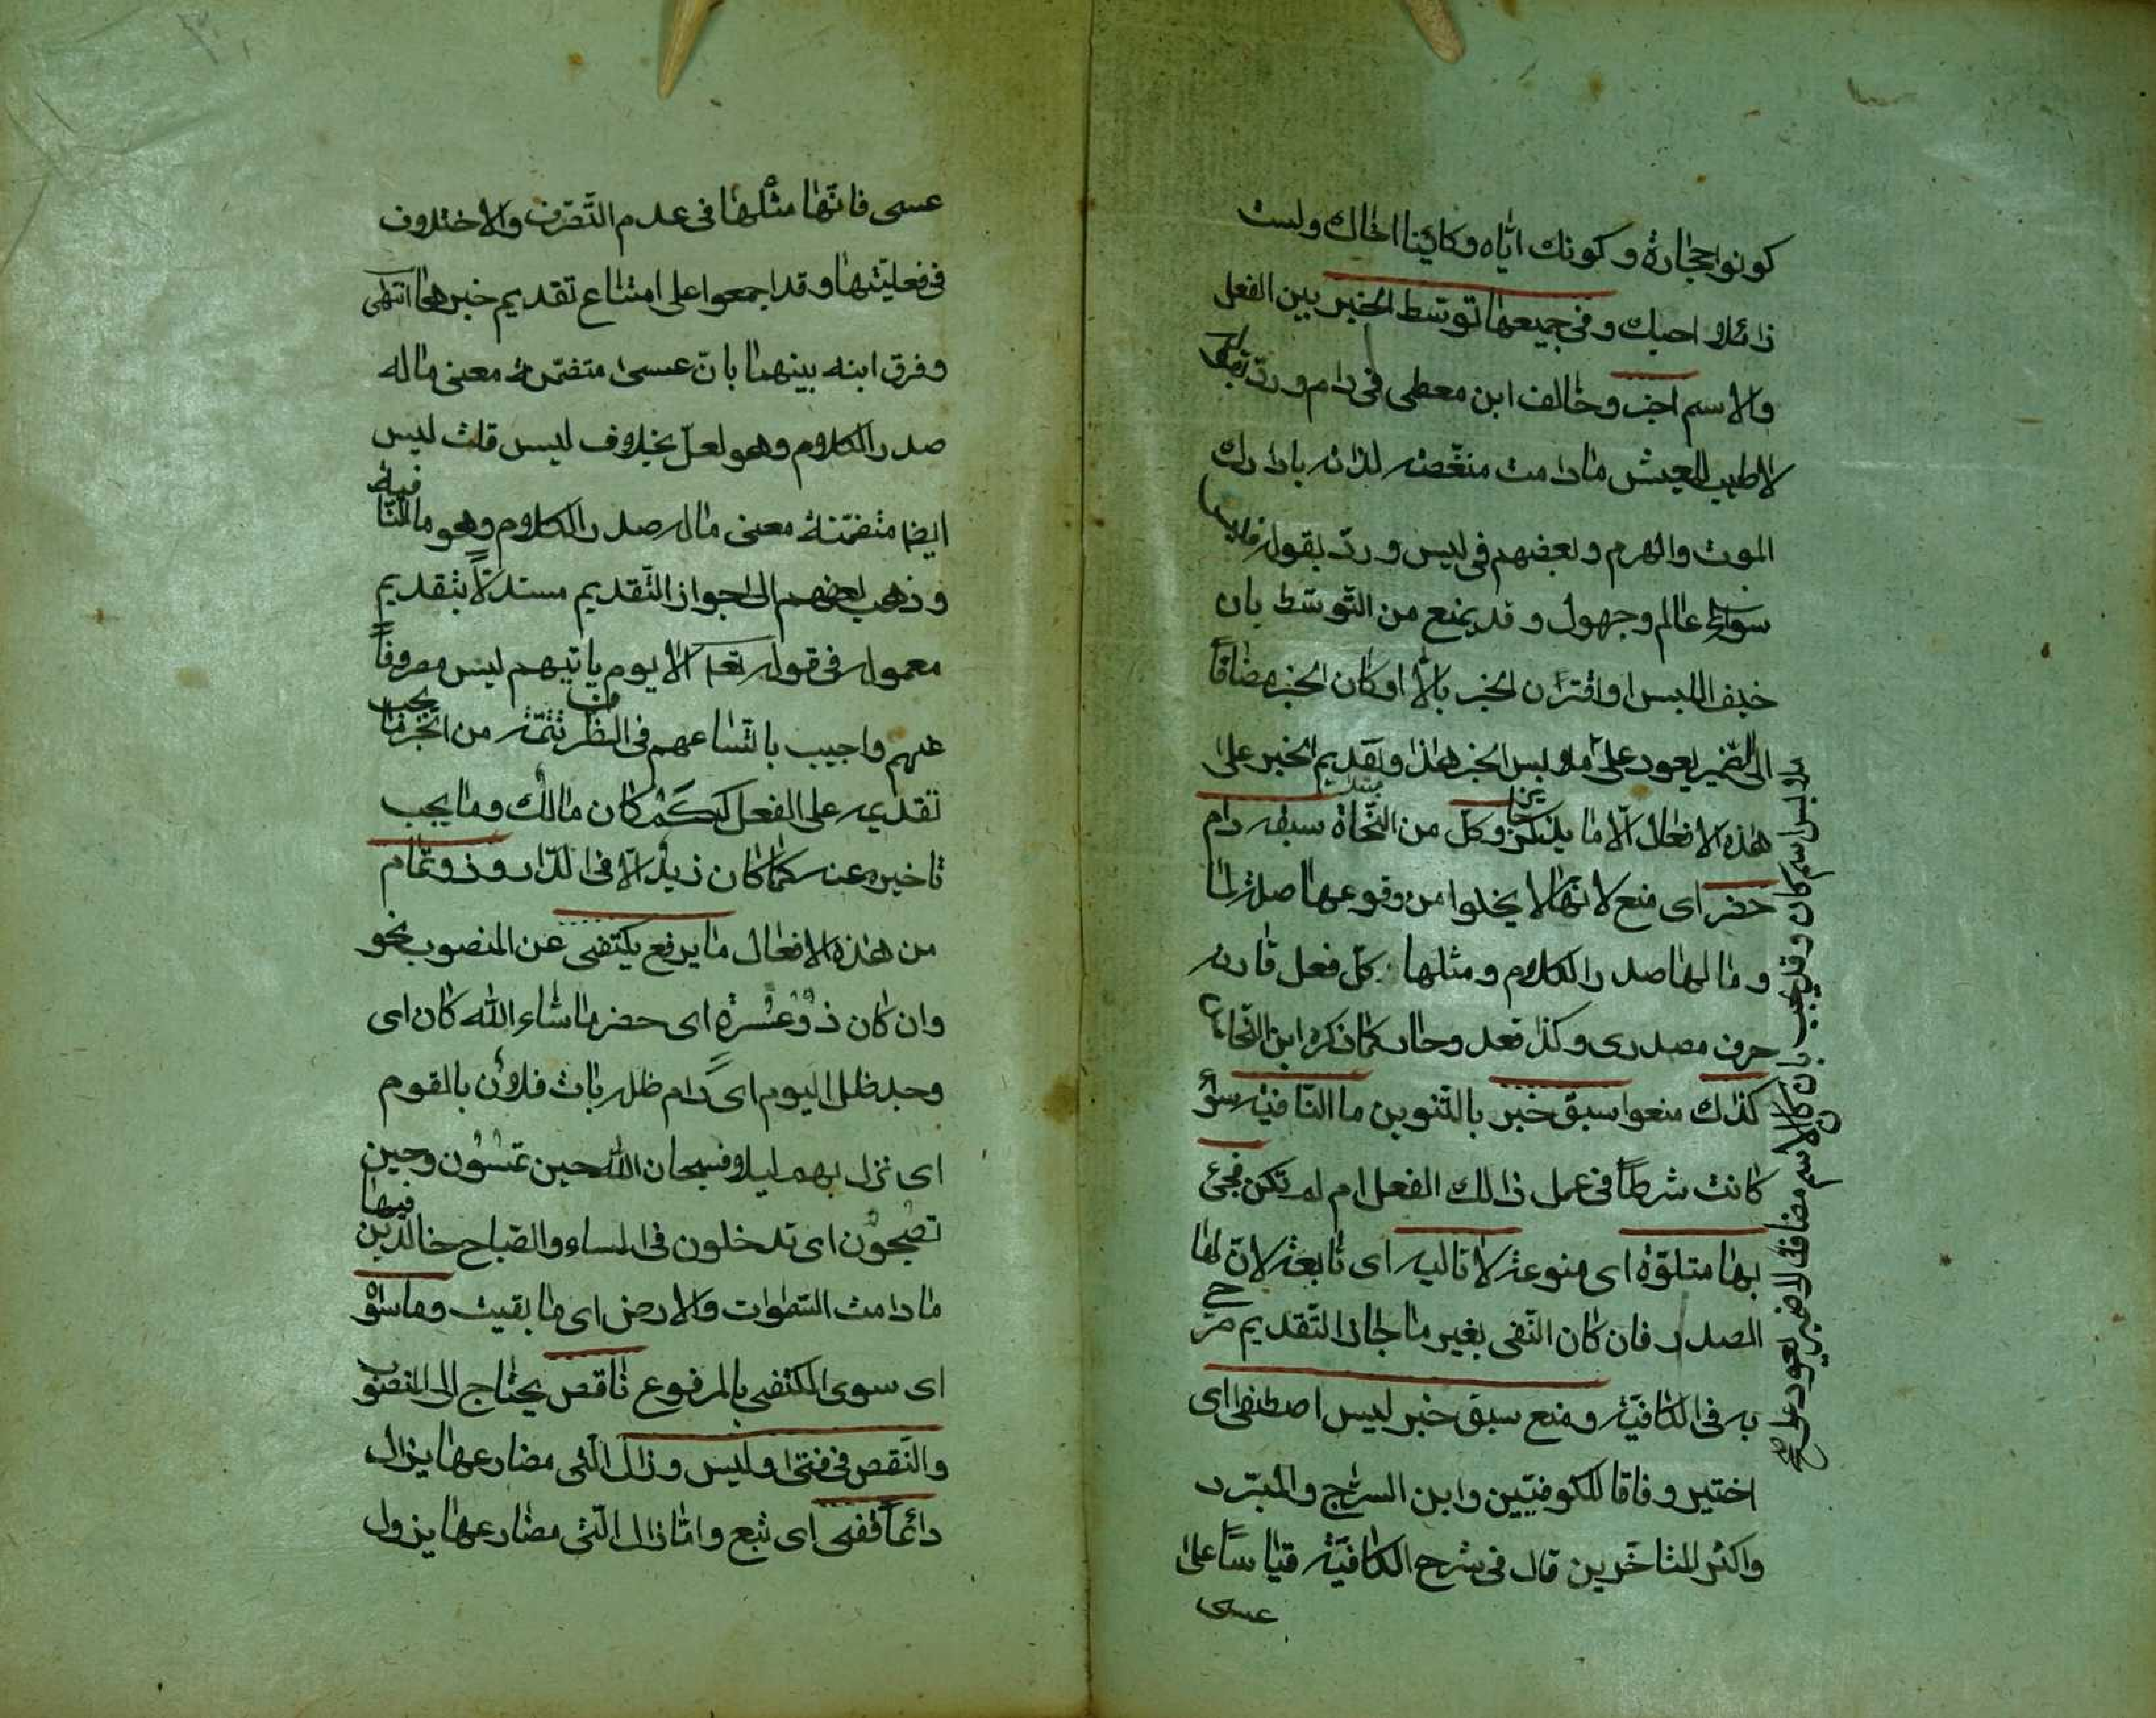 كونوا حجارة وكونك اياه وكاينا اخاك ولست
زائلا احبك وفى جميعها توسّط الخبر بين الفعل
والاسم اجز وخالف ابن معطى فى دام وردّ بقوله
لا طيب للعيش ما دامت منغّصه لذاته بادّراك
الموت والهرم وبعضهم فى ليس وردّ بقوله فليس
سواء عالم وجهول وقد يمنع من التّوسّط بان
خيف اللبس او اقترن الخبر بالاّ او كان الخبر مضافا
الى الضّمير يعود على ملابس الخبر هذا وتقديم الخبر على
هذه الافعال الاّ ما يذكر وكلّ من النّحاة سبقه دام
حضر اى منع لانّها لا يخلوا من وقوعها صلة لما
وما لها صدر الكلام ومثلها كلّ فعل قارنه
حرف مصدرى وكذا قعد وحال كما ذكره ابن النّحاس
كذاك منعوا سبق خبر بالتّنوين ما النّافية سواء
كانت شرطا فى عمل ذالك الفعل ام لم تكن فجئ
بها متلوّة اى متبوعة لا تالية اى تابعة لانّ لها
الصدر فان كان النّفى بغير ما جاز التّقديم صرّح
به فى الكافيّة ومنع سبق خبر ليس اصطفى اى
اختير وفاقا للكوفيّين وابن السرّاج والمبرّد
واكثر المتاخّرين قال فى شرح الكافيّة قياسا على
عسى
ملابس اسم كان وقد يجب بان كان الاسم مضافا الى ضمير يعود على
عسى فانّها مثلها فى عدم التّصرّف والاختلاف
فى فعليّتها وقد اجمعوا على امتناع تقديم خبرها انتهى
وفرق ابنه بينهما بانّ عسى متضمّنة معنى ما له
صدر الكلام وهو لعلّ بخلاف ليس قلت ليس
ايضا متضمّنة معنى ما له صدر الكلام وهو ما النّافية
وذهب بعضهم الى جواز التّقديم مستدلاّ بتقديم
معموله فى قوله تعالى الا يوم ياتيهم ليس مصروفا
عنهم واجيب باتّساعهم فى الظّروف تتمّة من الخبر ما يجب
تقديمه على الفعل ككم كان مالك وما يجب
تاخيره عنه كما كان زيد الاّ فى الدّار وذو تمام
من هذه الافعال ما برفع يكتفى عن المنصوب نحو
وان كان ذو عسرة اى حضر ما شاء الله كان اى
وجد ظلّ اليوم اى دام ظله بات فلان بالقوم
اى نزل بهم ليلا فسبحان الله حين تمسون وحين
تصبحون اى تدخلون فى المساء والصّباح خالدين فيها
ما دامت السّموات والارض اى ما بقيت وما سواه
اى سوى المكتفى بالمرفوع ناقص يحتاج الى المنصوب
والنّقص فى فتئ وليس وزال الّتى مضارعها يزال
دائما قفى اى تبع وامّا زال الّتى مضارعها يزول